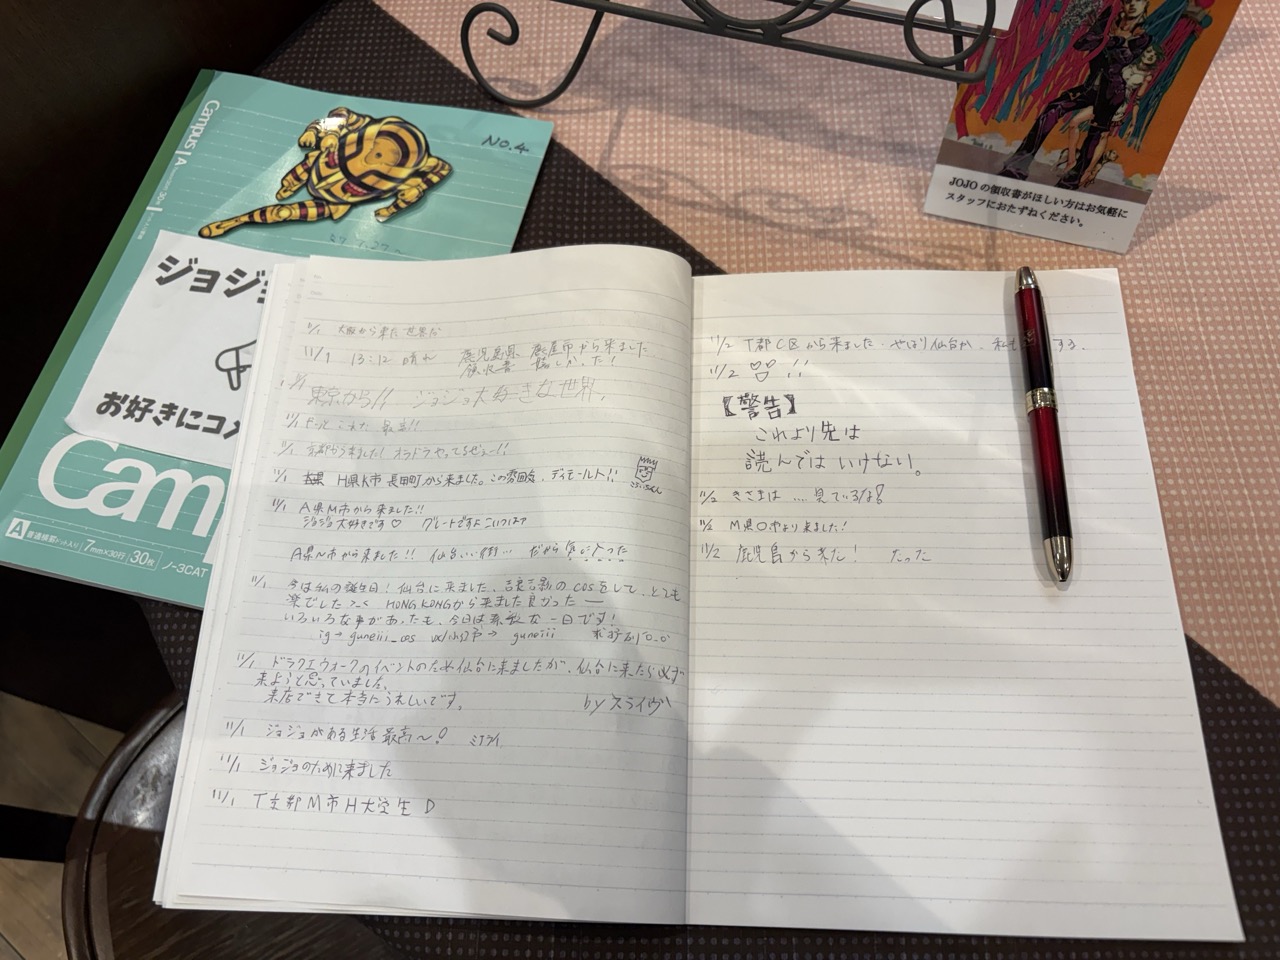 Campus
A
No.4
ジョジョ
お好きにコメ
Cam
A 普通横罫 7mm×30行 30枚 ノ-3CAT
JOJOの領収書がほしい方はお気軽に
スタッフにおたずねください。
11/1 大阪から来た 世界だ
11/1 13:12 晴れ 鹿児島県、鹿屋市から来ました
領収書 しかった!
東京から!! ジョジョ大好きな世界
11/1 最高!!
11/1 京都から来ました! オラドラやってるゼェー!!
11/1 H県K市長田町から来ました。この雰囲気、ディモールト!!
11/1 A県M市から来ました!!
ジョジョ大好きです♡ グレートですよこいつはァ
A県M市から来ました!! 仙台いい街… だから気に入った
11/1 今日は私の誕生日! 仙台に来ました、吉良吉影のcosをして、とても
楽でした HONG KONGから来ました良かった
いろいろな事があったも、今日は素敵な一日です!
ig→guneiii_cos
11/1 ドラクエウォークのイベントのため仙台に来ましたが、仙台に来たら必ず
来ようと思っていました。
来店できて本当にうれしいです。 by スライヴ
11/1 ジョジョがある生活最高〜!
11/1 ジョジョのために来ました
11/1 T都M市H大学生 D
11/2 T都C区から来ました。やはり仙台か、私も する。
11/2 !!
【警告】
これより先は
読んではいけない。
11/2 きさまは…見ているな!
11/2 M県O市より来ました!
11/2 鹿児島から来た!